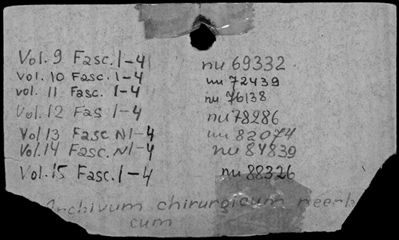 Vol. 9 Fasc. 1-4 nu 69332
Vol. 10 Fasc. 1-4 nu 72439
Vol. 11 Fasc. 1-4 nu 76138
Vol. 12 Fas 1-4 nu 78286
Vol 13 Fasc N1-4 nu 82074
Vol. 14 Fasc. N1-4 nu 84839
Vol. 15 Fasc. 1-4 nu 88326
Archivum chirurgicum neerl
cum